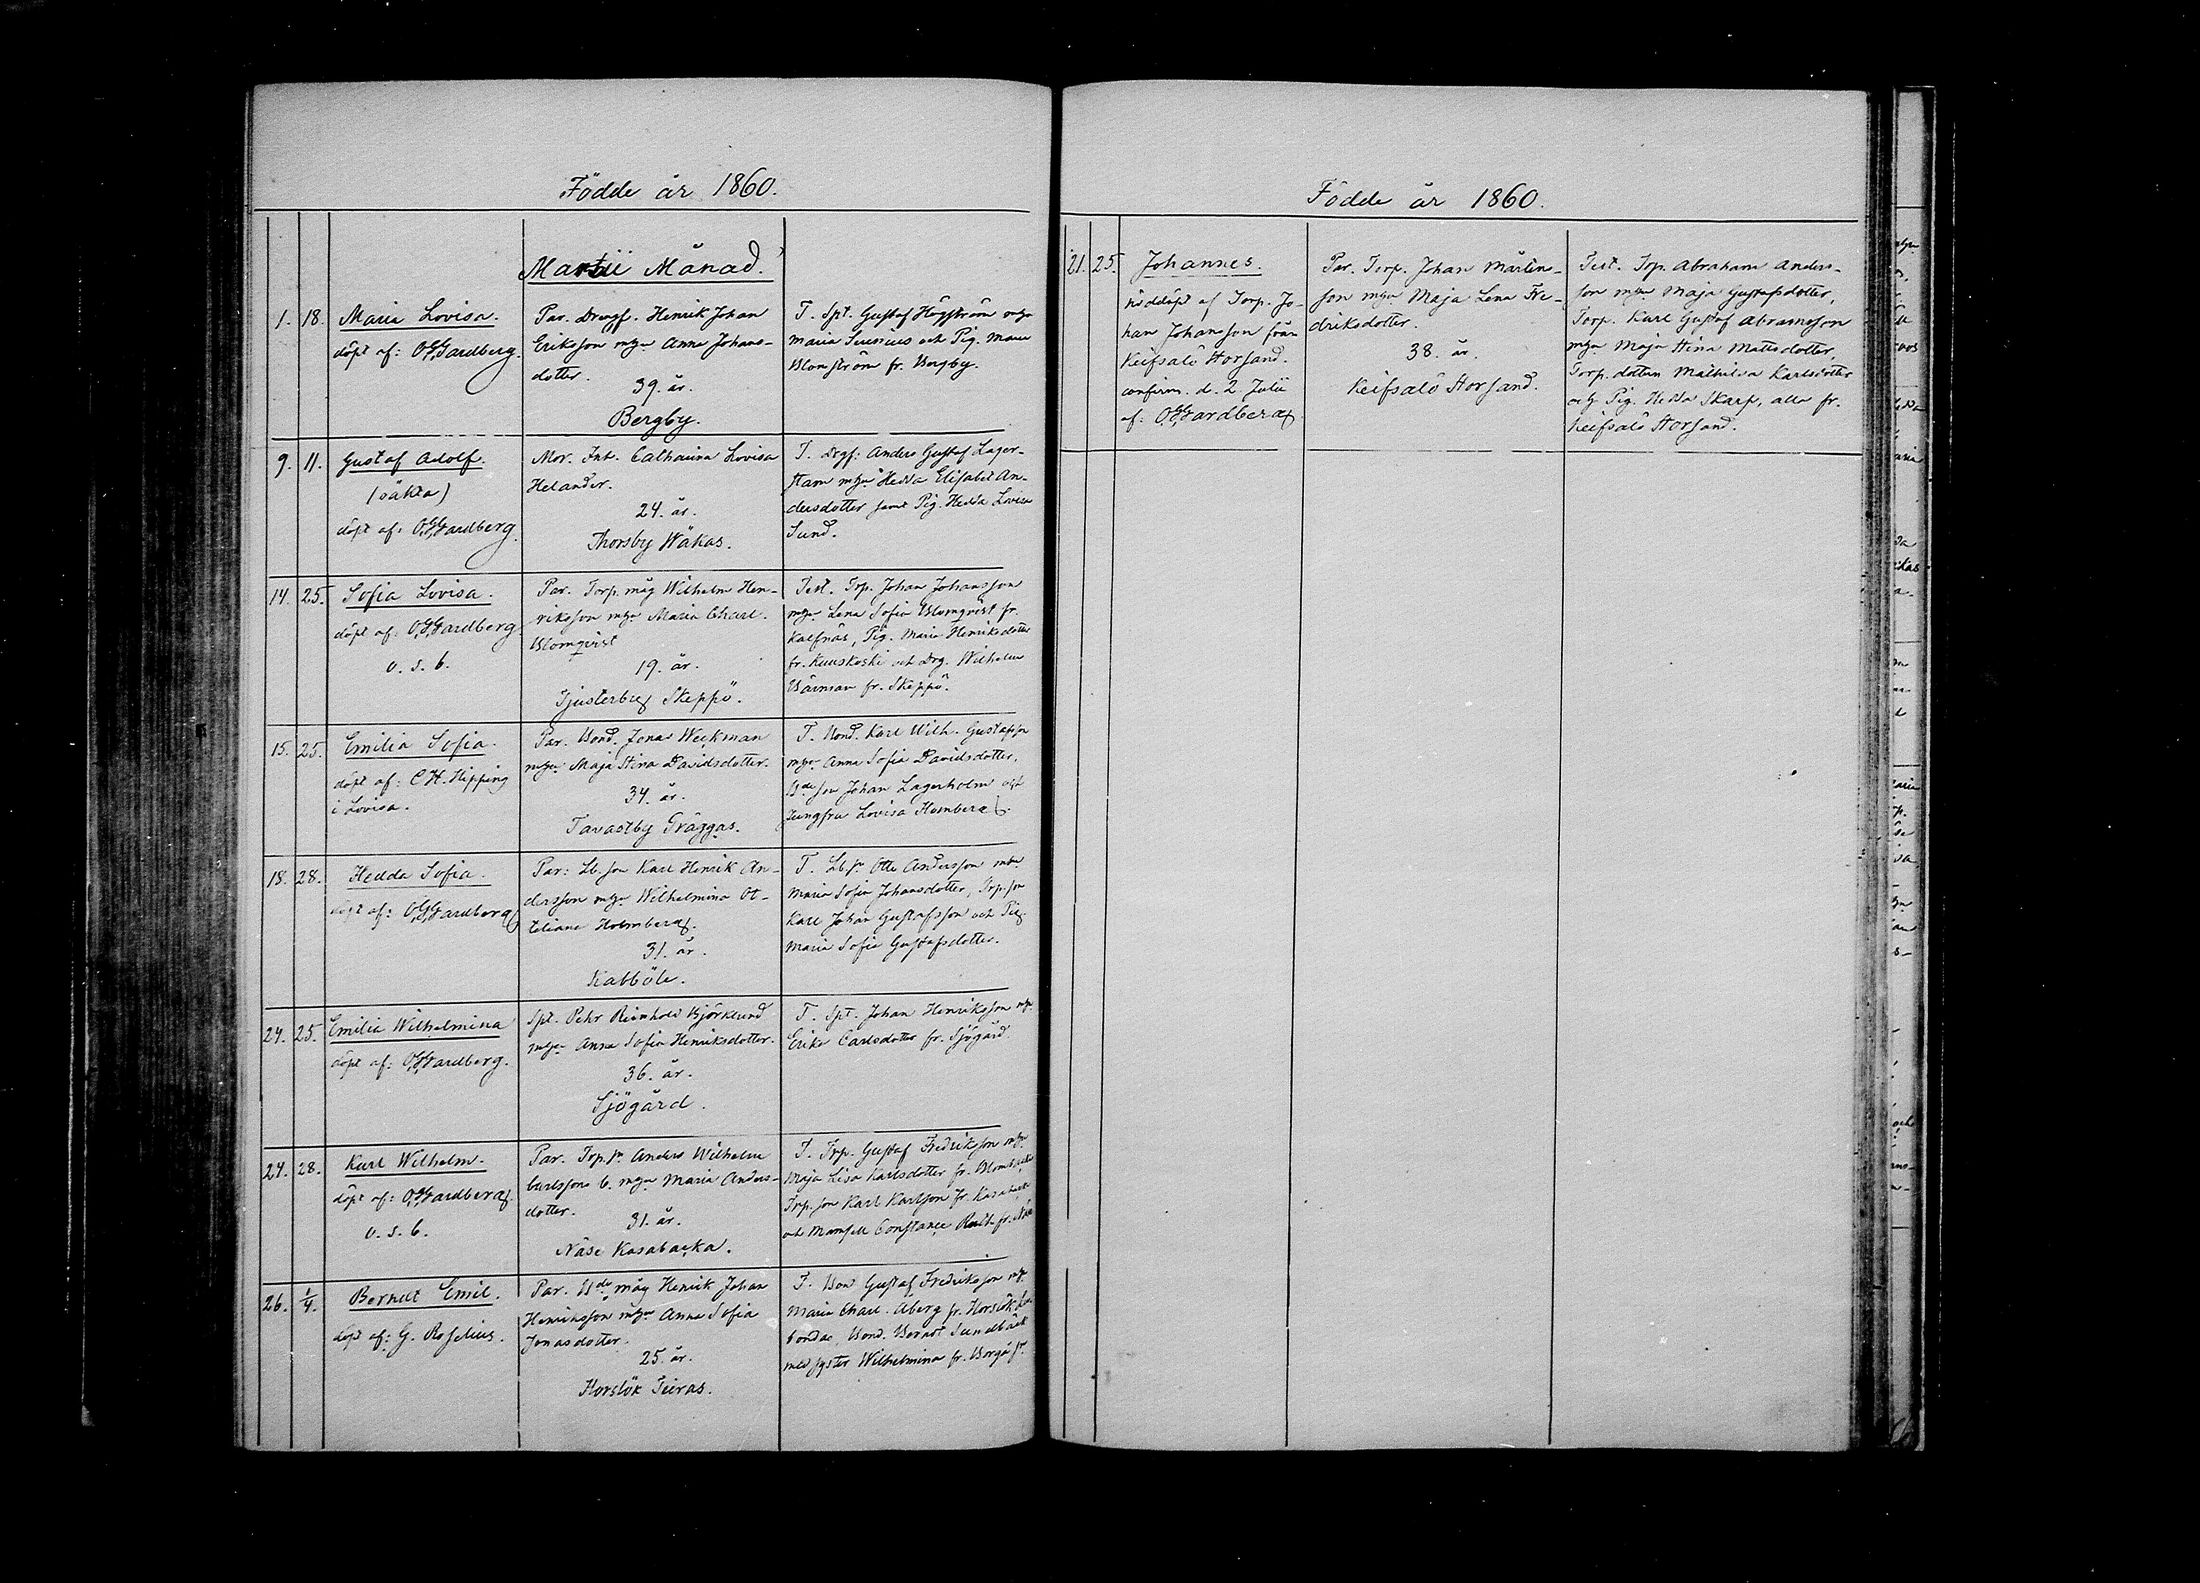 Födde år 1860.
Martii Månad.
1. 18. Maria Lovisa.
döpt af: O.G. Gardberg.
Par. Drngf. Henrik Johan
Eriksson m hu Anna Johans-
dotter.
39. år.
Bergby.
T. Spt. Gustaf Högström m hu
Maria Serenius och Pig. Maria
Blomström fr. Bergby.
9. 11. Gustaf Adolf.
(oäkta)
döpt af: O.G. Gardberg.
Mor. Inh. Catharina Lovisa
Helander.
24. år.
Thorsby Wäkas.
T. Drgf: Anders Gustaf Lager-
stam m hu Hedda Elisabet An-
dersdotter samt Pig. Hedda Lovisa
Sund.
14. 25. Sofia Lovisa.
döpt af: O.G. Gardberg
o. s. b.
Par. Torp. måg Wilhelm Hen-
riksson m hu Maria Charl.
Blomqvist
19. år.
Tjusterby Skeppö.
Test. Trp. Johan Johansson
m hu Lena Sofia Blomqvist fr.
Kalfnäs, Pig. Maria Henriksdotter
fr. Kuuskoski och Drg. Wilhelm
Wärnman fr. Skeppö.
15. 25. Emilia Sofia.
döpt af: C.H. Hipping
i Lovisa.
Par. Bond. Jonas Weckman
m hu Maja Stina Davidsdotter.
34. år.
Tavastby Gräggas.
T. Bond. Karl Wilh. Gustafsson
m hu Anna Sofia Davidsdotter,
Bde son Johan Lagerholm och
Jungfru Lovisa Homberg.
18. 28. Hedda Sofia.
döpt af: O.G. Gardberg
Par: Lb. son Karl Henrik An-
dersson m hu Wilhelmina Ot-
teliana Holmberg.
31. år.
Kabböle.
T. Lb. sn Otto Andersson m hu
Maria Sofia Johansdotter, Trp. son
Karl Johan Gustafsson och Pig.
Maria Sofia Gustafsdotter.
24. 25. Emilia Wilhelmina
döpt af: O.G. Gardberg.
Spt. Pehr Reinhold Björklund
m hu Anna Sofia Henriksdotter.
36. år.
Sjögård.
T. Spt. Johan Henriksson m hu
Erika Carlsdotter fr. Sjögård.
24. 28. Karl Wilhelm.
döpt af: O.G. Gardberg.
o. s. b.
Par. Trp. sn Anders Wilhelm
Carlsson b. m hu Maria Anders-
dotter.
31. år.
Näse Kasabacka.
T. Trp. Gustaf Fredriksson m hu
Maja Lisa Karlsdotter fr.
Trp. son Karl Karlsson fr.
och Mamsell Constance fr.
26. 1/4. Berndt Emil.
döpt af: G. Roselius.
Par. Bde måg Henrik Johan
Henriksson m hu Anna Sofia
Jonasdotter.
25. år.
Horslök Tieras.
T. Bond Gustaf Fredriksson m hu
Maria Charl. Åberg fr. Horslök,
Bond. Berndt Sundbäck
med syster Wilhelmina fr. Borgå sn
Födde år 1860.
21. 25. Johannes.
nöddöpt af Torp. Jo-
han Johansson från
Keifsalö Storsand.
confirm. d. 2 Julii
af: O.G. Gardberg.
Par. Torp. Johan Mårtens-
son m hu Maja Lena Fre-
driksdotter.
38. år.
Keifsalö Storsand.
Test. Torp. Abraham Anders-
son m hu Maja Gustafsdotter,
Torp. Karl Gustaf Abramsson
m hu Maja Stina Mattsdotter,
Torp. dottern Mathilda Karlsdotter
och Pig. Hedda Skarp, alla fr.
Keifsalö Storsand.